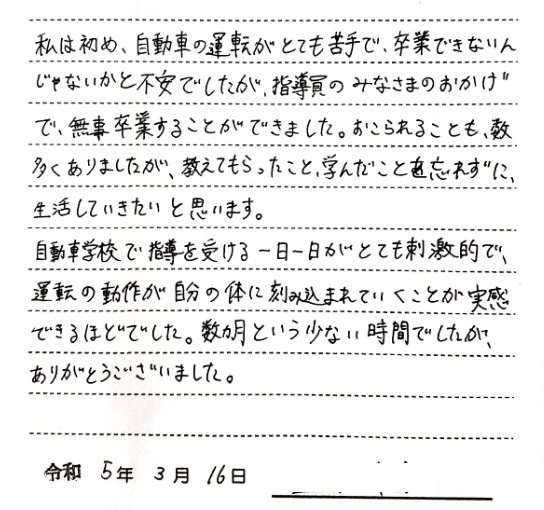 私は初め、自動車の運転がとても苦手で、卒業できないん
じゃないかと不安でしたが、指導員のみなさまのおかげ
で、無事卒業することができました。おこられることも、数
多くありましたが、教えてもらったこと、学んだことを忘れずに、
生活していきたいと思います。
自動車学校で指導を受ける一日一日がとても刺激的で、
運転の動作が自分の体に刻み込まれていくことが実感
できるほどでした。数カ月という少ない時間でしたが、
ありがとうございました。
令和 5年 3月 16日